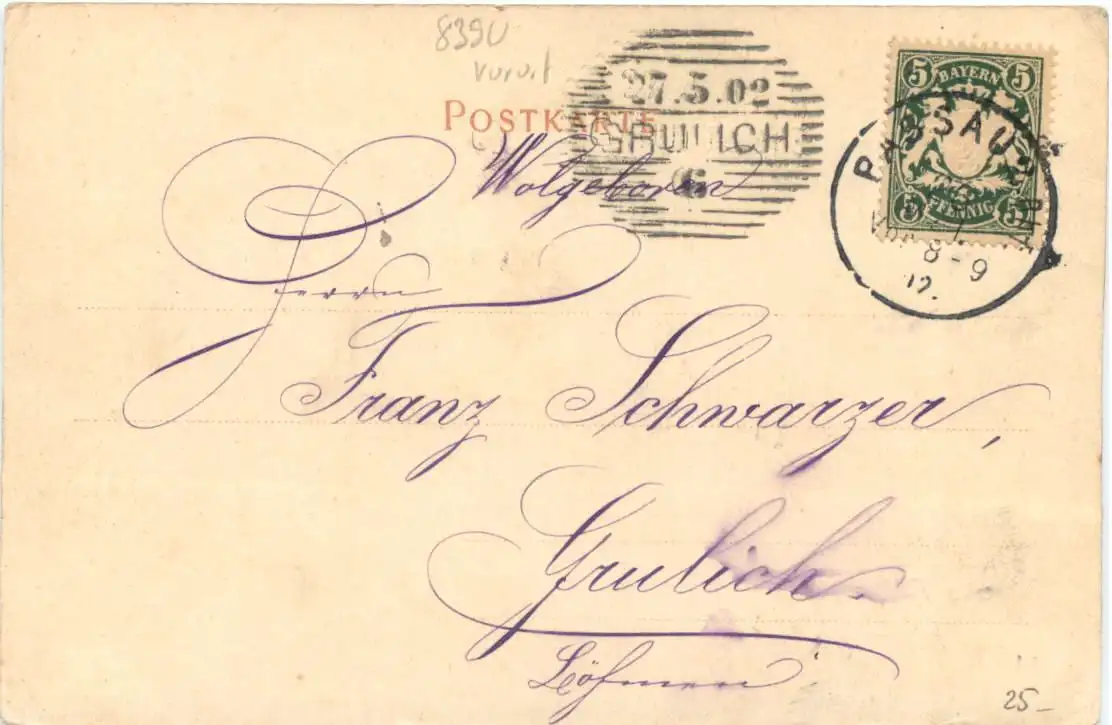 8390
vorort
POSTKARTE
27.5.02
GRULICH
6
5 BAYERN 5
5 PFENNIG 5
PASSAU
VOR 8-9
02.
Wolgeboren
Herrn
Franz Schwarzer,
Grulich.
Böhmen
25_